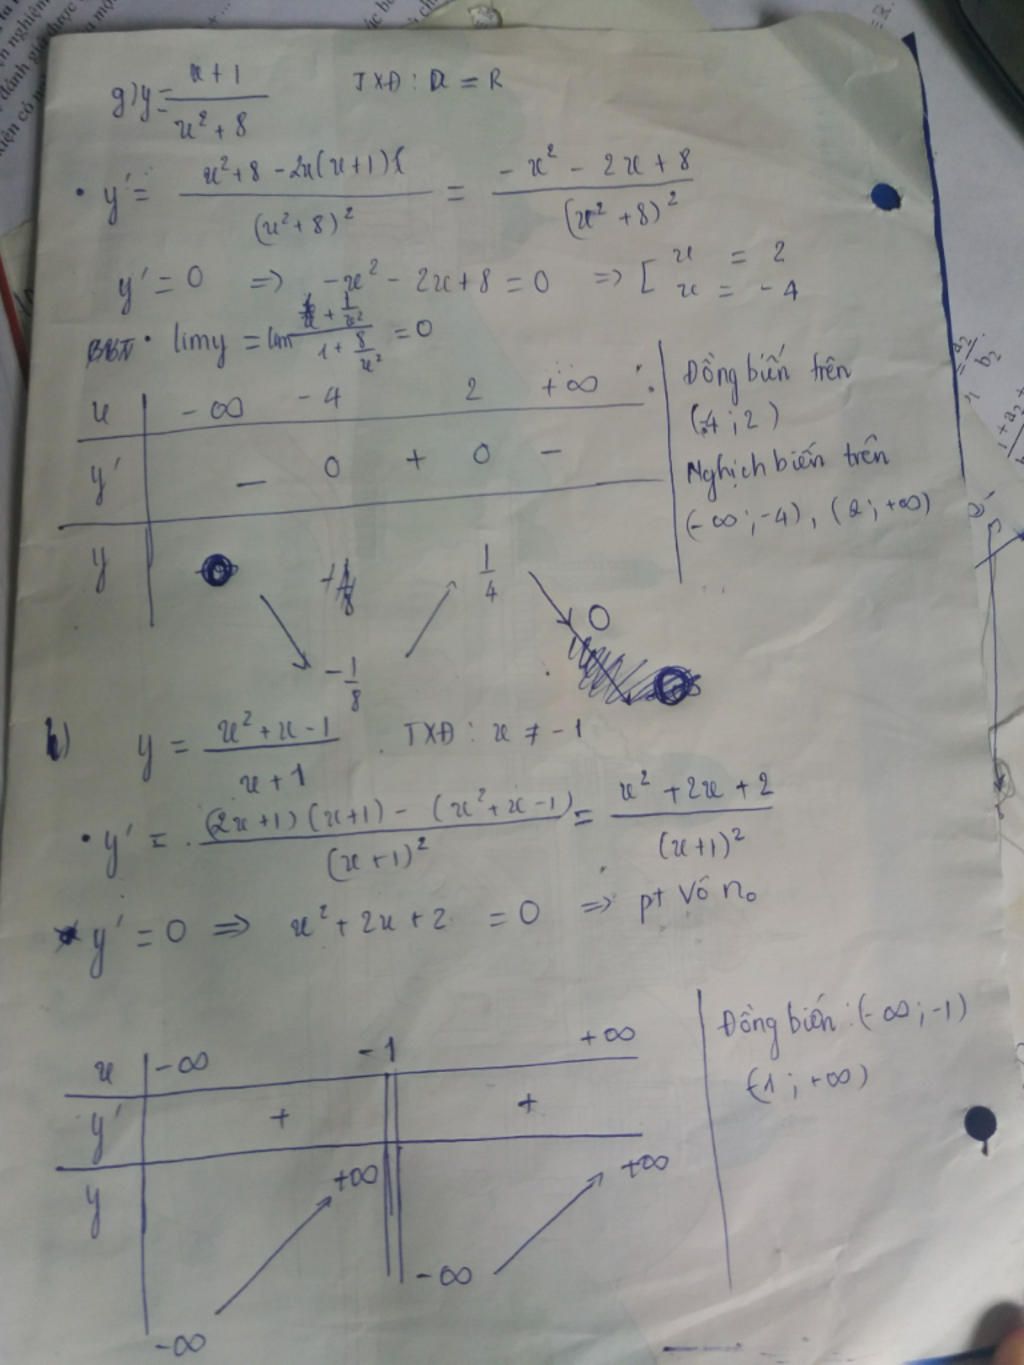 g) y = (x + 1)/(x² + 8) TXĐ: D = R
• y' = (x² + 8 - 2x(x+1))/((x²+8)²) = (-x² - 2x + 8)/((x² + 8)²)
y' = 0 => -x² - 2x + 8 = 0 => [ x = 2
x = -4
BBT • lim y = lim (1/x + 1/x²)/(1 + 8/x²) = 0
x -∞ -4 2 +∞
y' - 0 + 0 -
y 1/4 0
-1/8
Đồng biến trên
(-4; 2)
Nghịch biến trên
(-∞; -4), (2; +∞)
h) y = (x² + x - 1)/(x + 1) . TXĐ: x ≠ -1
• y' = ((2x+1)(x+1) - (x² + x - 1))/((x+1)²) = (x² + 2x + 2)/((x+1)²)
y' = 0 => x² + 2x + 2 = 0 => pt vô no
x -∞ -1 +∞
y' + +
y +∞ +∞
-∞ -∞
Đồng biến: (-∞; -1)
(-1; +∞)